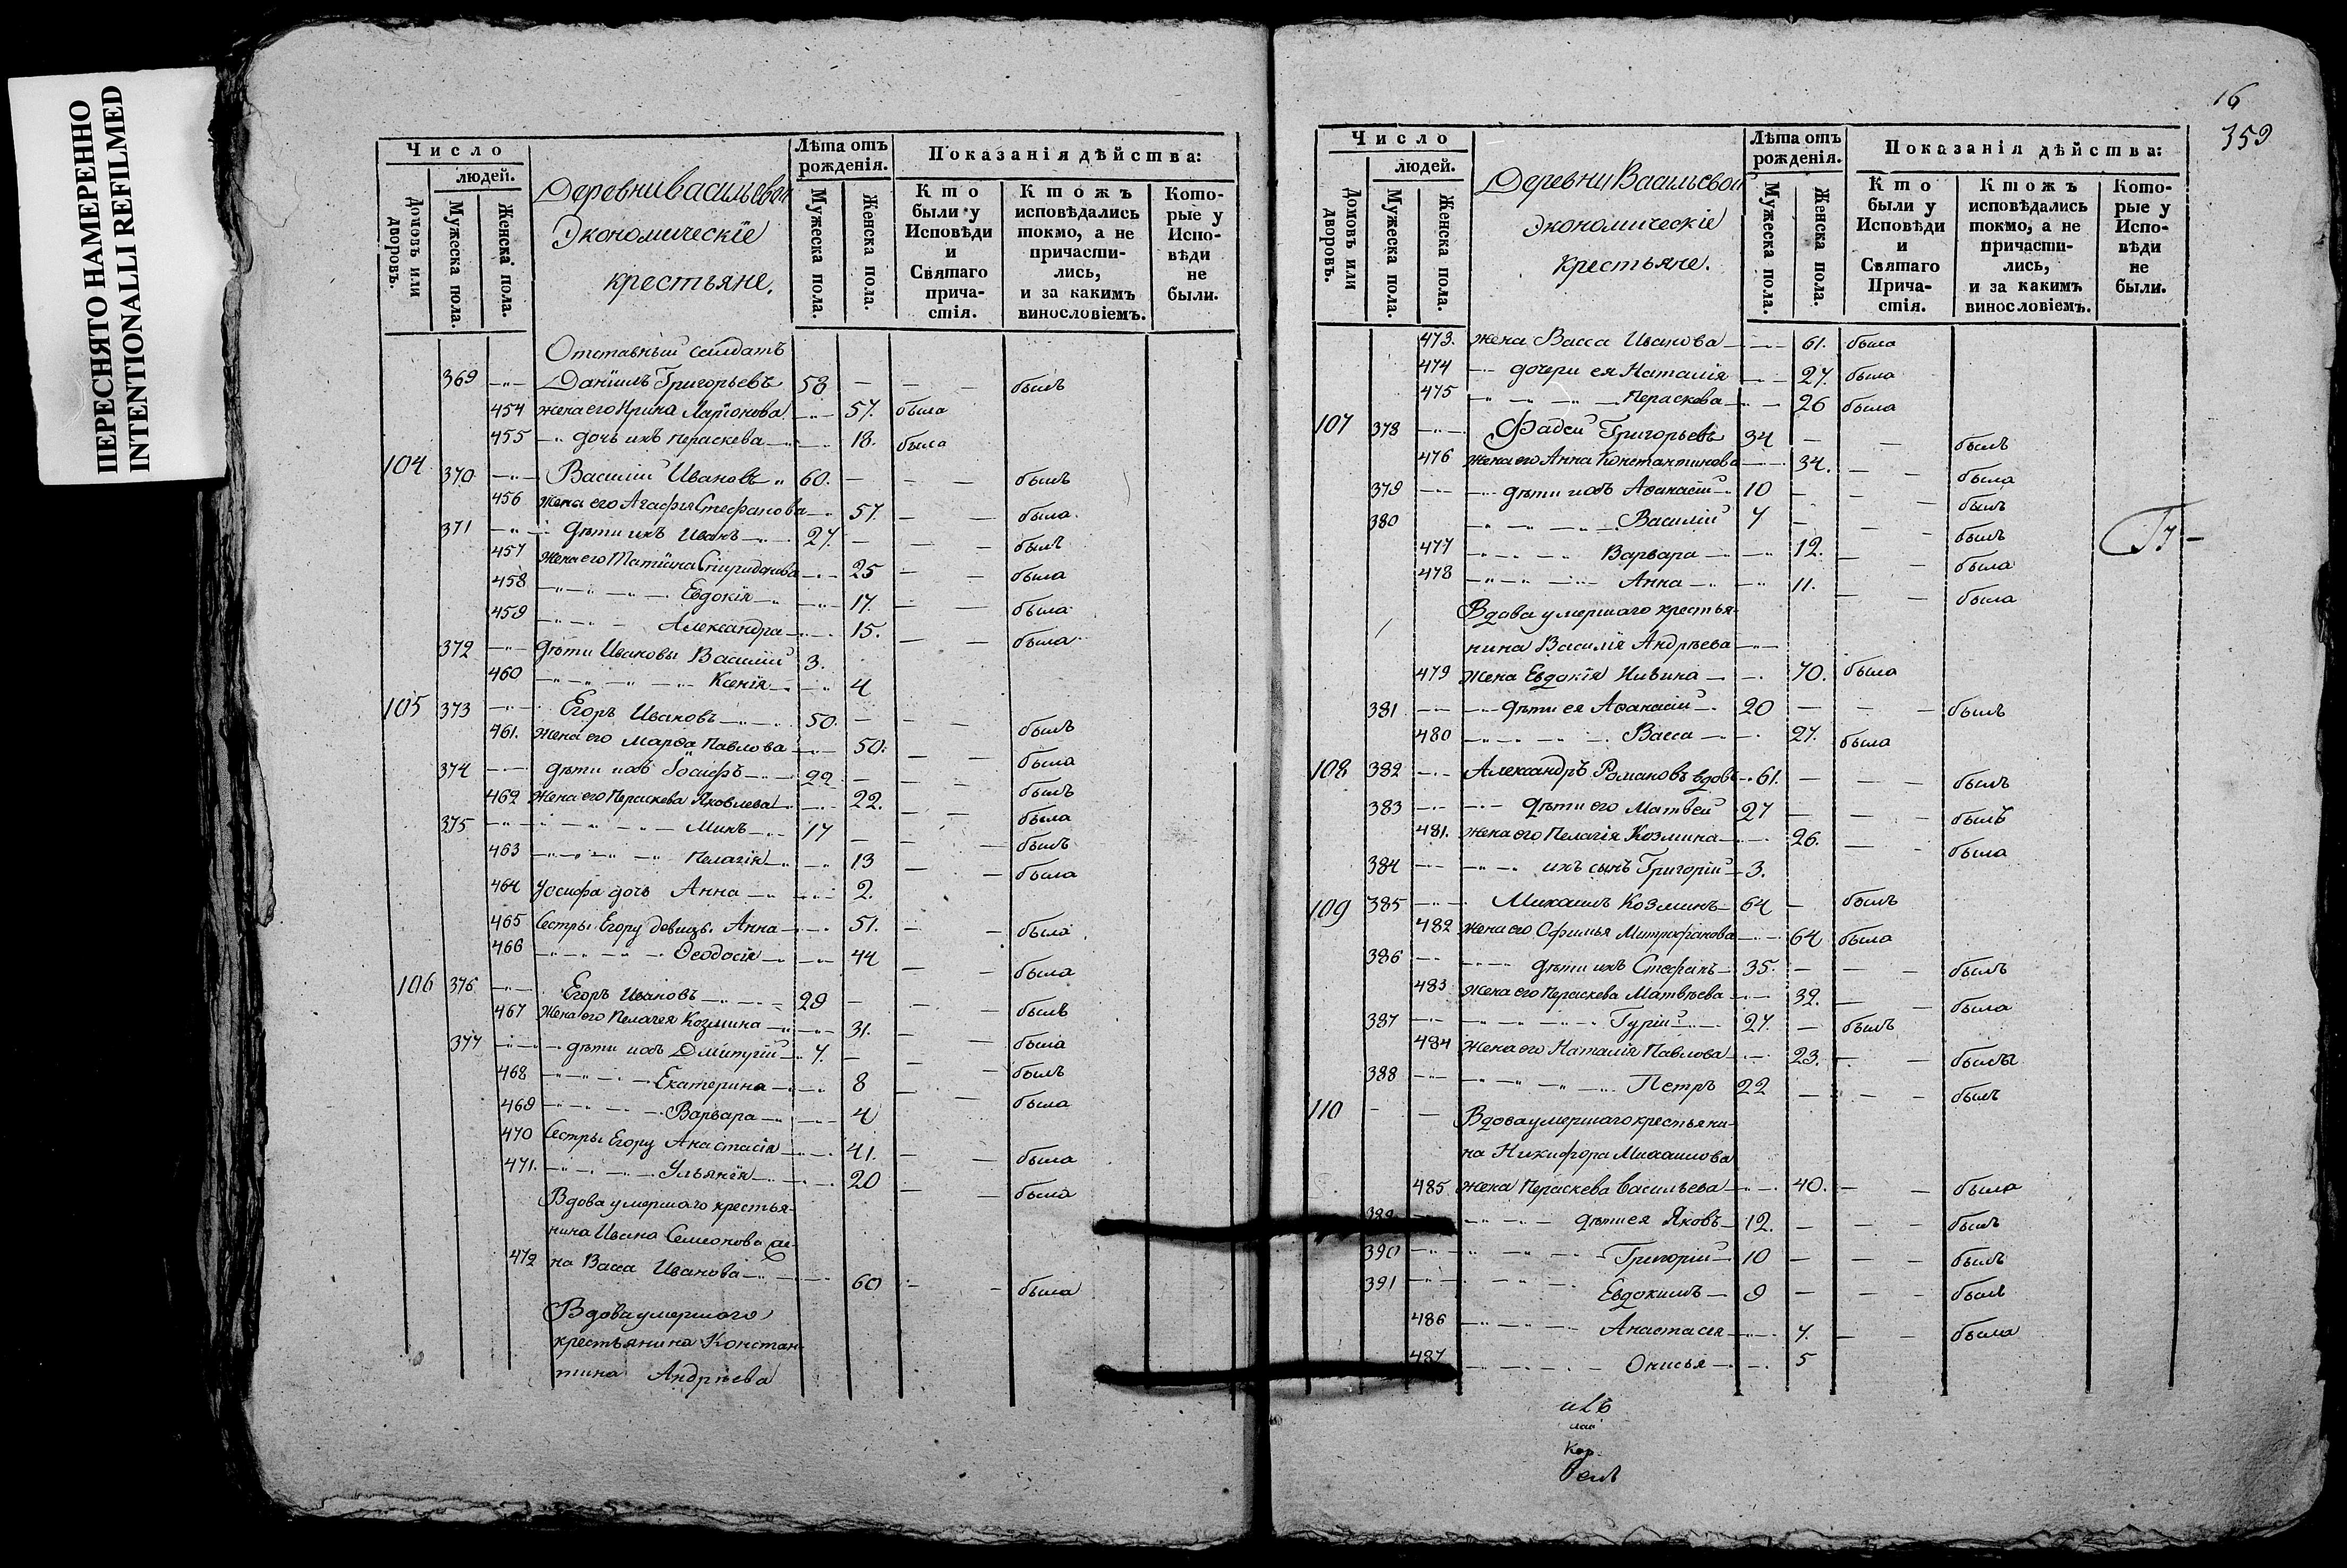 ПЕРЕСНЯТО НАМЕРЕННО
INTENTIONALLI REFILMED
Число
людей.
Домовъ или дворовъ.
Мужеска пола.
Женска пола.
Деревни Васильевой
Экономическіе
крестьяне.
Лѣта отъ рожденія.
Мужеска пола.
Женска пола.
Показанія дѣйства:
Кто были у Исповѣди и Святаго прича-стія.
Ктожъ исповѣдались токмо, а не причасти-лись, и за какимъ винословіемъ.
Кото-рые у Испо-вѣди не были.
Отставный солдатъ
369 Даніилъ Григорьевъ 58 былъ
454 жена его Ирина Ларіонова 57. была
455 дочь ихъ Параскева 18. была
104 370 Василій Ивановъ 60. былъ
456 жена его Агафья Стефанова 57. была
371 дѣти ихъ Иванъ 27. былъ
457 жена его Татіана Спиридонова 25 была
458 Евдокія 17. была
459 Александра 15. была
372 дѣти Ивановы Василій 3.
460 Ксенія 4
105 373 Егоръ Ивановъ 50. былъ
461. жена его Марѳа Павлова 50. была
374 дѣти ихъ Іосифъ 22 былъ
462 жена его Параскева Яковлева 22. была
375 Минъ 17 былъ
463 Пелагія 13 была
464 Іосифа дочь Анна 2.
465 Сестры Егору девицы. Анна 51. была
466 Ѳеодосія 44 была
106 376 Егоръ Ивановъ 29 былъ
467 жена его Пелагея Козмина 31. была
377 дѣти ихъ Дмитрій 7. былъ
468 Екатерина 8 была
469 Варвара 4
470 Сестры Егору Анастасія 41. была
471. Ульянія 20 была
Вдова умершаго крестья-
нина Ивана Семенова же-
472 на Васса Иванова 60 была
Вдова умершаго
крестьянина Констан-
тина Андрѣева
16
359
Число
людей.
Домовъ или дворовъ.
Мужеска пола.
Женска пола.
Деревни Васильевой
Экономическіе
крестьяне.
Лѣта отъ рожденія.
Мужеска пола.
Женска пола.
Показанія дѣйства:
Кто были у Исповѣди и Святаго Прича-стія.
Ктожъ исповѣдались токмо, а не причасти-лись, и за какимъ винословіемъ.
Кото-рые у Испо-вѣди не были.
473. жена Васса Иванова 61. была
474 дочери ея Наталія 27. была
475 Параскева 26 была
107 378 Фадей Григорьевъ 34 былъ
476 жена его Анна Константинова 34. была
379 дѣти ихъ Аѳанасій 10 былъ
380 Василій 7 былъ
477 Варвара 12. была
478 Анна 11. была
Вдова умершаго крестья-
нина Василія Андрѣева
479 жена Евдокія 70. была
381 дѣти ея Аѳанасій 20 былъ
480 Васса 27. была
108 382 Александръ Романовъ вдовъ 61. былъ
383 дѣти его Матвей 27 былъ
481. жена его Пелагія Козмина 26. была
384 ихъ сынъ Григорій 3.
109 385 Михаилъ Козминъ 64 былъ
482 жена его Офимья Митрофанова 64 была
386 дѣти ихъ Стефанъ 35. былъ
483 жена его Параскева Матвѣева 32. была
387 Гурій 27. былъ
484 жена его Наталія Павлова 23. была
388 Петръ 22 былъ
110 Вдова умершаго крестьяни-
на Никифора Михайлова
485 жена Параскева Васильева 40. была
389 дѣти ея Яковъ 12. былъ
390 Григорій 10 былъ
391 Евдокимъ 9 былъ
486 Анастасія 7. была
487 Онисья 5